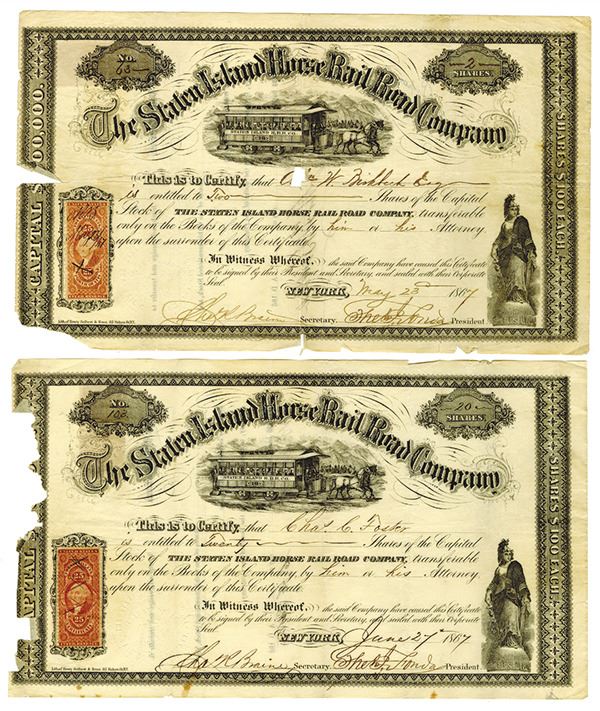 No. 68
2 SHARES.
The Staten Island Horse Rail Road Company
STATEN ISLAND H.R.R. CO.
CAPITAL
00,000.
SHARES $100 EACH.
This is to Certify, that W. Esq
is entitled to Two Shares of the Capital
Stock of THE STATEN ISLAND HORSE RAIL ROAD COMPANY, transferable
only on the Books of the Company by him or his Attorney
upon the surrender of this Certificate.
In Witness Whereof, the said Company have caused this Certificate
to be signed by their President and Secretary, and sealed with their Corporate
Seal
NEW YORK, May 23d 1867
Secretary. President.
No. 108
20 SHARES.
The Staten Island Horse Rail Road Company
STATEN ISLAND H.R.R. CO.
APITAL
SHARES $100 EACH.
This is to Certify, that Chas. C. Foster
is entitled to Twenty Shares of the Capital
Stock of THE STATEN ISLAND HORSE RAIL ROAD COMPANY, transferable
only on the Books of the Company by him or his Attorney
upon the surrender of this Certificate
In Witness Whereof, the said Company have caused this Certificate
to be signed by their President and Secretary, and sealed with their Corporate
Seal
25 25
NEW YORK, June 27th 1867
Secretary. President.